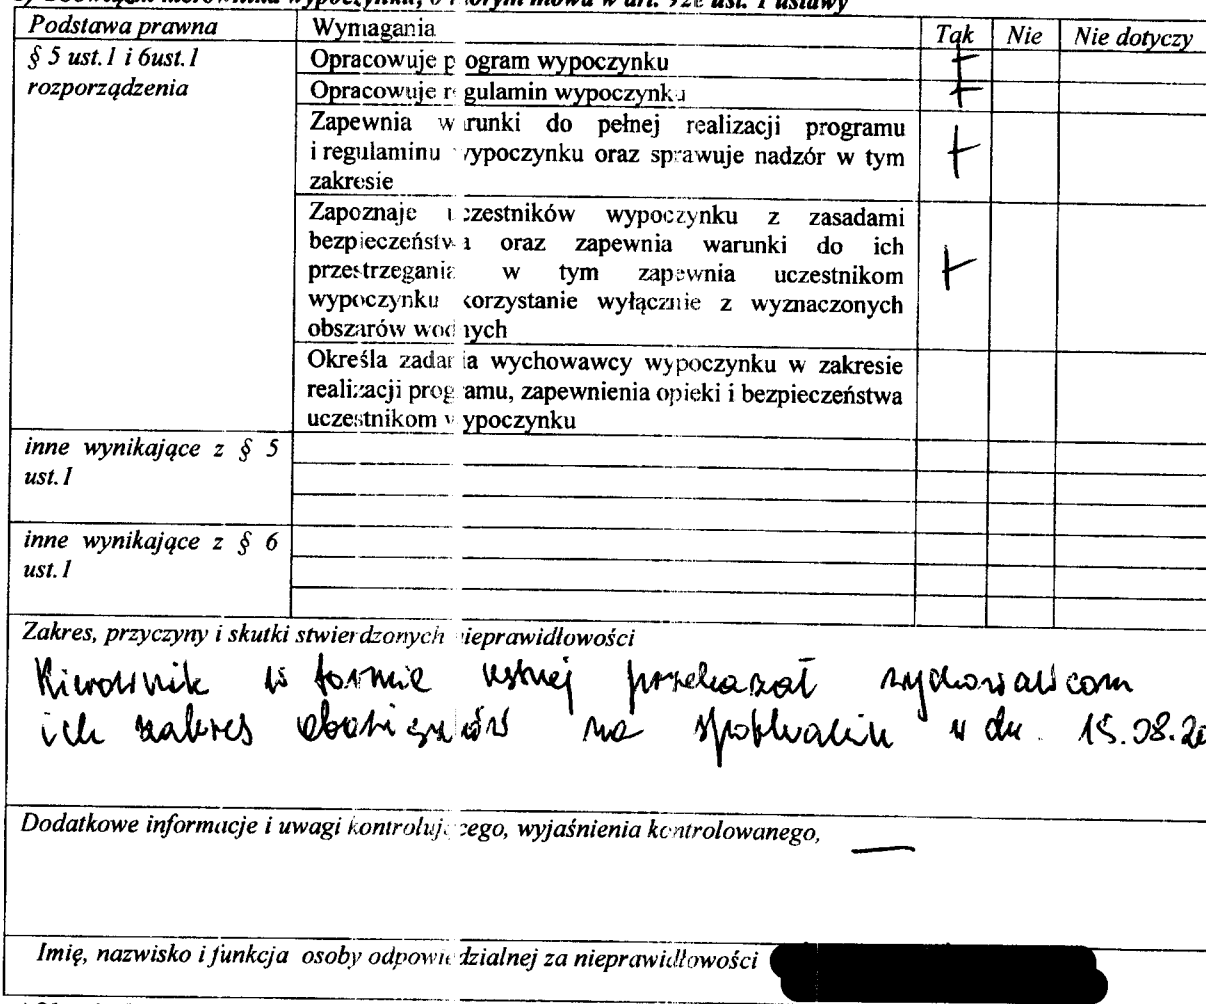 kierownika wypoczynku, o którym mowa w art. 92c ust. 1 ustawy
Podstawa prawna Wymagania Tak Nie Nie dotyczy
§ 5 ust.1 i 6ust.1
rozporządzenia
Opracowuje program wypoczynku +
Opracowuje regulamin wypoczynku +
Zapewnia warunki do pełnej realizacji programu
i regulaminu wypoczynku oraz sprawuje nadzór w tym
zakresie +
Zapoznaje uczestników wypoczynku z zasadami
bezpieczeństwa oraz zapewnia warunki do ich
przestrzegania w tym zapewnia uczestnikom +
wypoczynku korzystanie wyłącznie z wyznaczonych
obszarów wodnych
Określa zadania wychowawcy wypoczynku w zakresie
realizacji programu, zapewnienia opieki i bezpieczeństwa
uczestnikom wypoczynku
inne wynikające z § 5
ust.1
inne wynikające z § 6
ust.1
Zakres, przyczyny i skutki stwierdzonych nieprawidłowości
Kierownik w formie ustnej przekazał wychowawcom
ich zakres obowiązków na spotkaniu w dn. 15.08.20
Dodatkowe informacje i uwagi kontrolującego, wyjaśnienia kontrolowanego, —
Imię, nazwisko i funkcja osoby odpowiedzialnej za nieprawidłowości